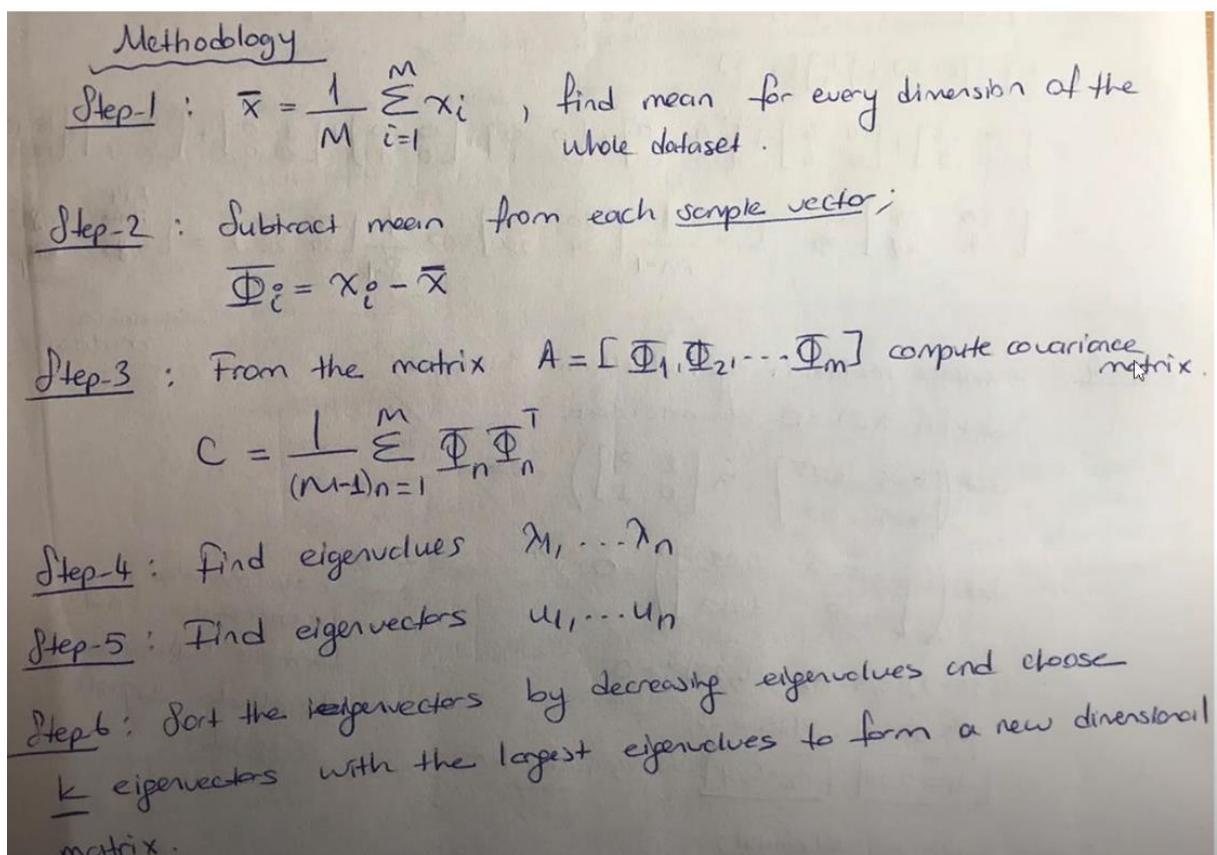 Methodology
Step-1 : x̄ = 1/M Σ_{i=1}^{M} x_i , find mean for every dimension of the
whole dataset.
Step-2 : Subtract mean from each sample vector;
Φ_i = x_i - x̄
Step-3 : From the matrix A = [ Φ_1, Φ_2, ... Φ_m ] compute covariance
matrix.
C = 1/(M-1) Σ_{n=1}^{M} Φ_n Φ_n^T
Step-4 : Find eigenvalues λ_1, ... λ_n
Step-5 : Find eigenvectors u_1, ... u_n
Step 6 : Sort the eigenvectors by decreasing eigenvalues and choose
k eigenvectors with the largest eigenvalues to form a new dimensional
matrix.